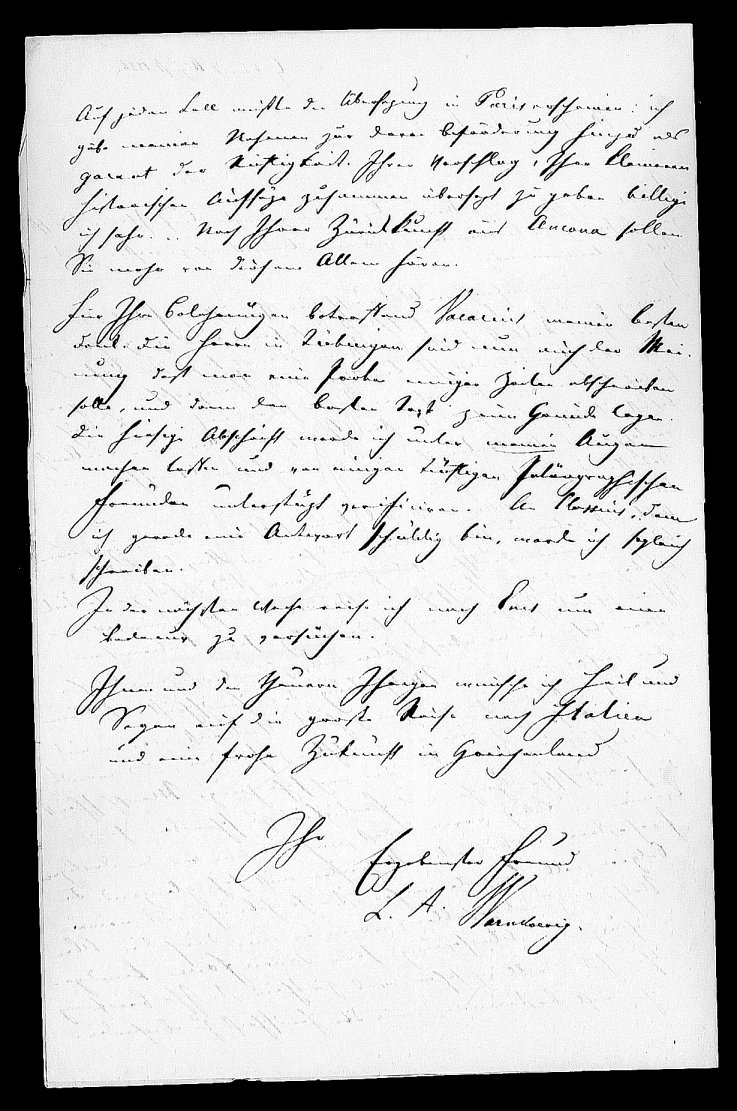 Auf jeden Fall müßte die Übersetzung in Paris erscheinen: ich
gäbe meinen Nahmen zur deren Beförderung hinzu als
garant der Richtigkeit. Ihren Vorschlag, Ihre kleineren
historischen Aufsäze zusammen übersezt zu geben billige
ich sehr. .. Nach Ihrer Zurückkunft aus Ancona sollen
Sie mehr von diesem Allem hören.
Für Ihre Belehrungen betreffend Vacarius meinen besten
Dank. Die Herrn in Tübingen sind nun auch der Mei-
nung daß man eine Probe einiger Zeilen abschreiben
solle, und dann den besten Text zum Grunde legen.
Die hiesige Abschrift werde ich unter meinen Augen
machen lassen und von einigen tüchtigen Paläographischen
Freunden unterstüzt verificiren. An Clossius, dem
ich gerade eine Antwort schuldig bin, werde ich sogleich
schreiben.
In der nächsten Woche reise ich nach um einen
zu versuchen.
Ihnen und den theuern Ihrigen wünsche ich Heil und
Segen auf die große Reise nach Italien
und eine frohe Zukunft in Griechenland
Ihr
Ergebenster Freund
L. A. Warnkoenig.